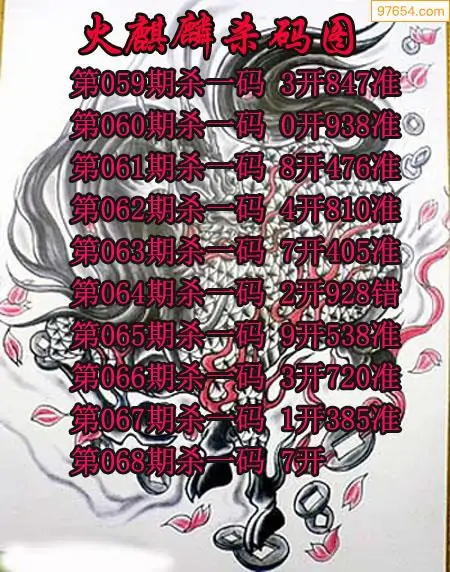 97654.com
火麒麟杀码图
第059期杀一码 3开847准
第060期杀一码 0开938准
第061期杀一码 8开476准
第062期杀一码 4开810准
第063期杀一码 7开405准
第064期杀一码 2开928错
第065期杀一码 9开538准
第066期杀一码 3开720准
第067期杀一码 1开385准
第068期杀一码 7开